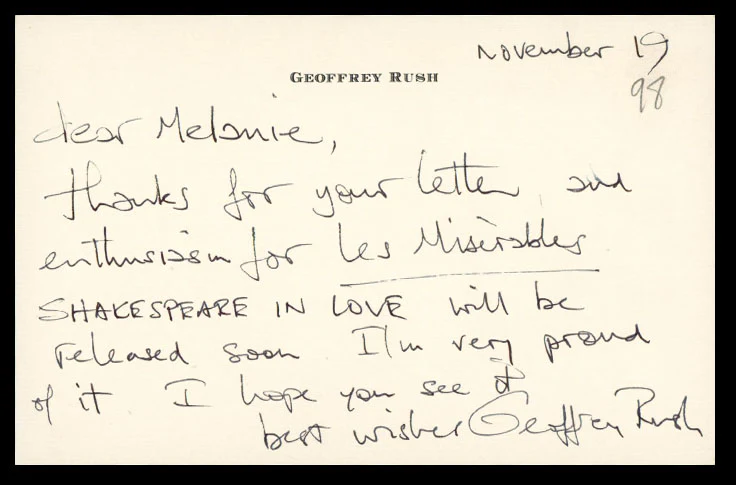 November 19
98
GEOFFREY RUSH
dear Melanie,
thanks for your letter and
enthusiasm for Les Misèrables
SHAKESPEARE IN LOVE will be
released soon I'm very proud
of it I hope you see it
best wishes Geoffrey Rush